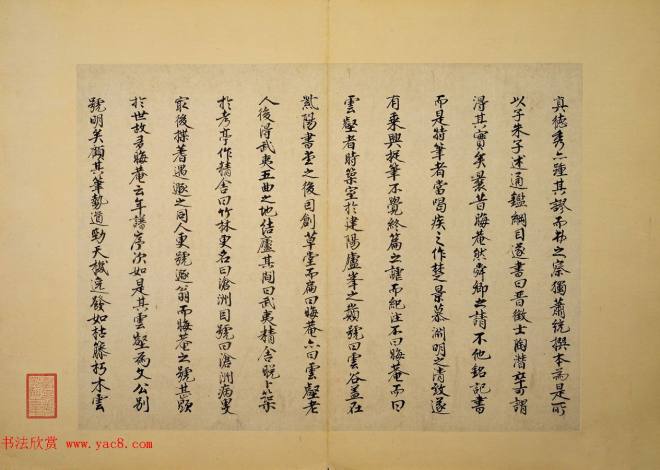 真德秀亦踵其謬而弗之察獨蕭統撰本為是所
以子朱子述通鑑綱目遂書曰晉徵士陶潛卒可謂
得其實矣曩昔晦菴然舜卿之請不他銘記書
而是特筆者當喝疾之作楚景慕淵明之清致遂
有乘興捉筆不覺終篇之謹而紀注不曰晦菴而曰
雲壑者時築室於建陽廬峯之巔號曰雲谷蓋在
紫陽書堂之後因創草堂而扁曰晦菴亦曰雲壑老
人後得武夷五曲之地結廬其間曰武夷精舍晚卜築
於考亭作精舍曰竹林更名曰滄洲因號曰滄洲病叟
最後揲蓍遇遯之同人更號遯翁而晦菴之號甚顯
於世故多晦菴云年譜序次如是其雲壑為文公別
號明矣顧其筆勢遒勁天機逸發如枯藤朽木雲
书法欣赏 www.yac8.com